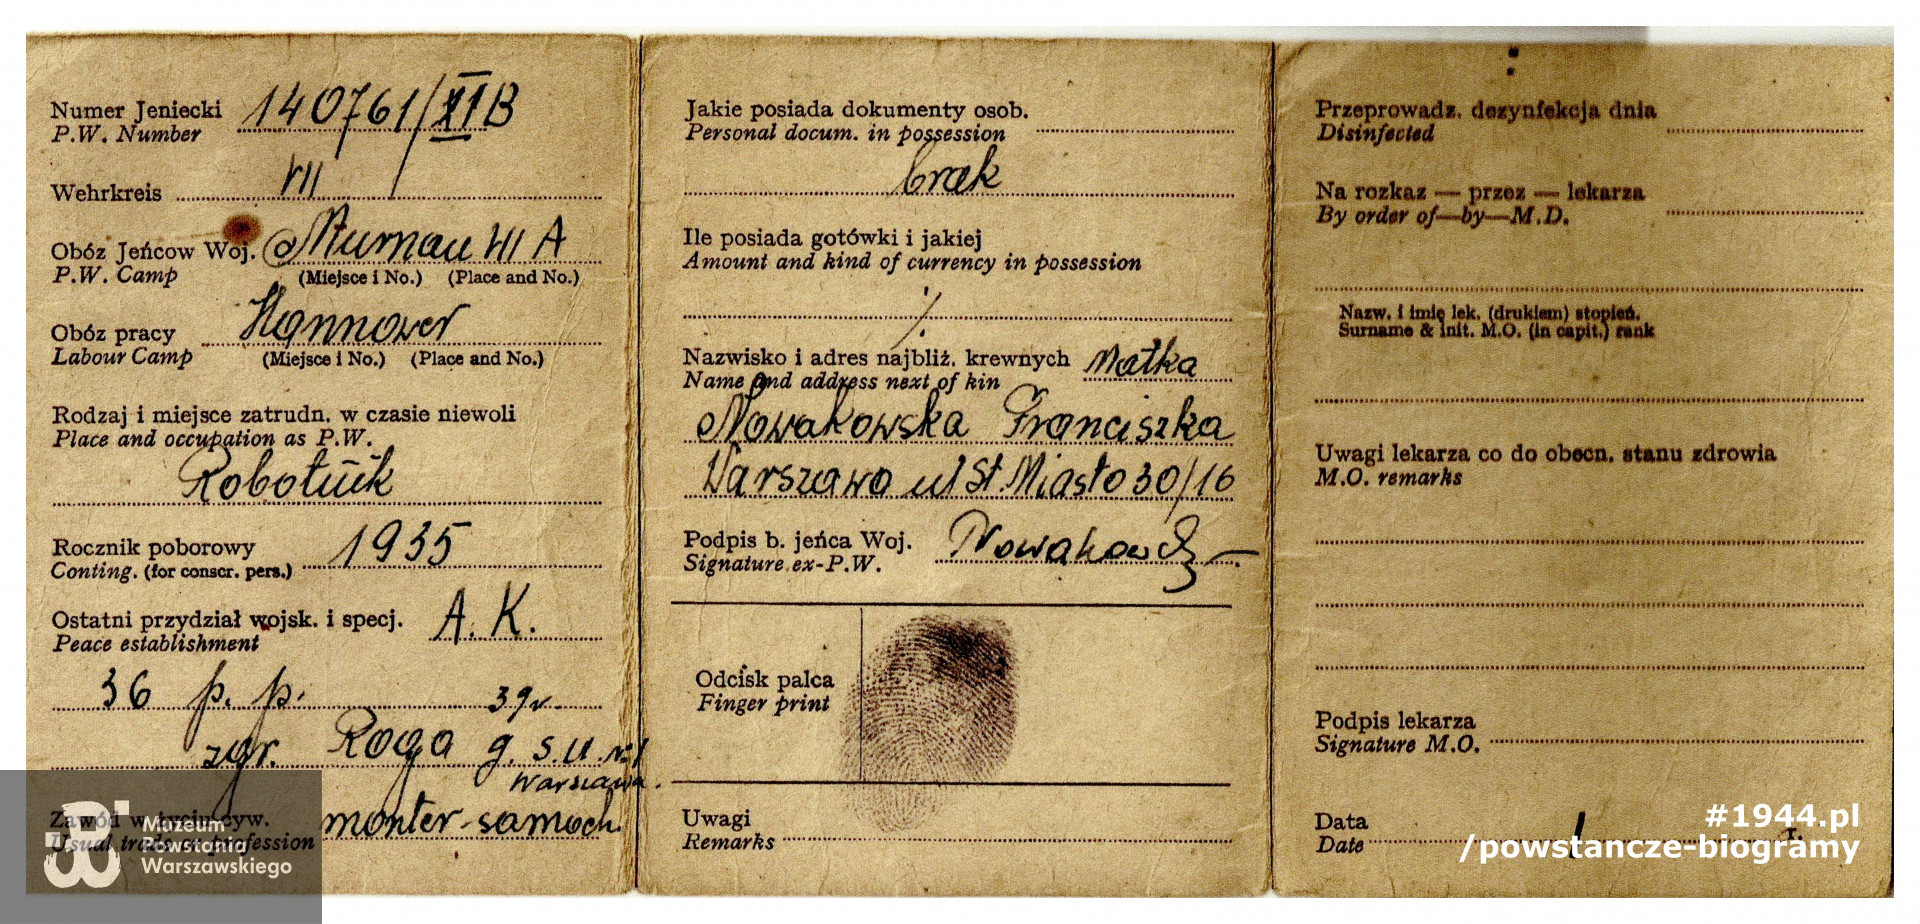 Numer Jeniecki 140761/XIB
P.W. Number
Wehrkreis VII
Obóz Jeńcow Woj. Murnau VII A
P.W. Camp (Miejsce i No.) (Place and No.)
Obóz pracy Hannower
Labour Camp (Miejsce i No.) (Place and No.)
Rodzaj i miejsce zatrudn. w czasie niewoli
Place and occupation as P.W.
Robotnik
Rocznik poborowy 1935
Conting. (for conscr. pers.)
Ostatni przydział wojsk. i specj. A. K.
Peace establishment
36 p. p. 39r.
zgr. Roga g. S.U. Nr 1
Warszawa.
Zawód w życiu cyw. monter-samoch.
Usual trade or profession
Jakie posiada dokumenty osob.
Personal docum. in possession
brak
Ile posiada gotówki i jakiej
Amount and kind of currency in possession
·/·
Nazwisko i adres najbliż. krewnych Matka
Name and address next of kin
Nowakowska Franciszka
Warszawa ul St. Miasto 30/16
Podpis b. jeńca Woj.
Signature ex-P.W.
Odcisk palca
Finger print
Uwagi
Remarks
Przeprowadz. dezynfekcja dnia
Disinfected
Na rozkaz — przez — lekarza
By order of—by—M.D.
Nazw. i imię lek. (drukiem) stopień.
Surname & init. M.O. (in capit.) rank
Uwagi lekarza co do obecn. stanu zdrowia
M.O. remarks
Podpis lekarza
Signature M.O.
Data
Date r.
Muzeum
Powstania
Warszawskiego
#1944.pl
/powstancze-biogramy